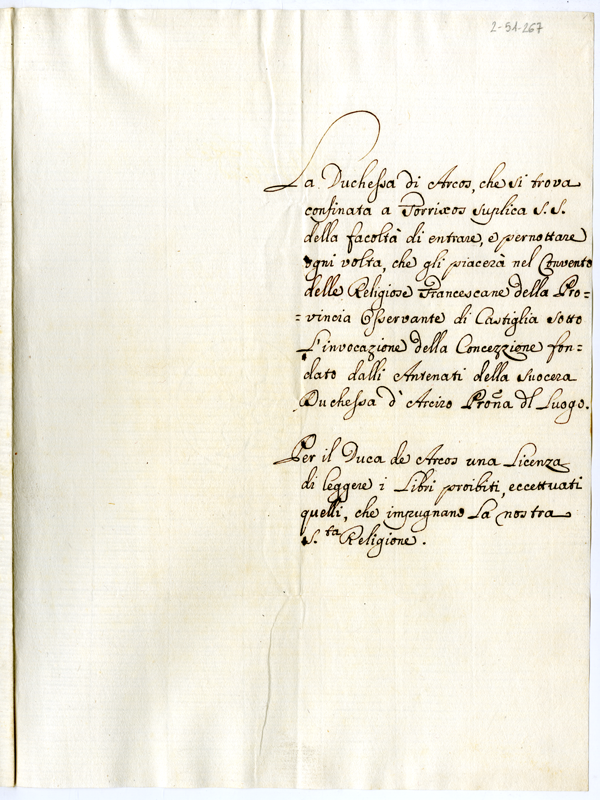 2-51-267
La Duchessa di Arcos, che si trova
confinata a Torrixos suplica S. S.
della facoltà di entrare, e pernottare
ogni volta, che gli piacerà nel Convento
delle Religiose Francescane della Pro-
=vincia Osservante di Castiglia sotto
L'invocazione della Concezzione fon=
dato dalli Antenati della Suocera
Duchessa d'Arcizo Prona dl Luogo.
Per il Duca de Arcos una Licenza
di leggere i Libri proibiti, eccettuati
quelli, che impugnano La nostra
S.ta Religione.